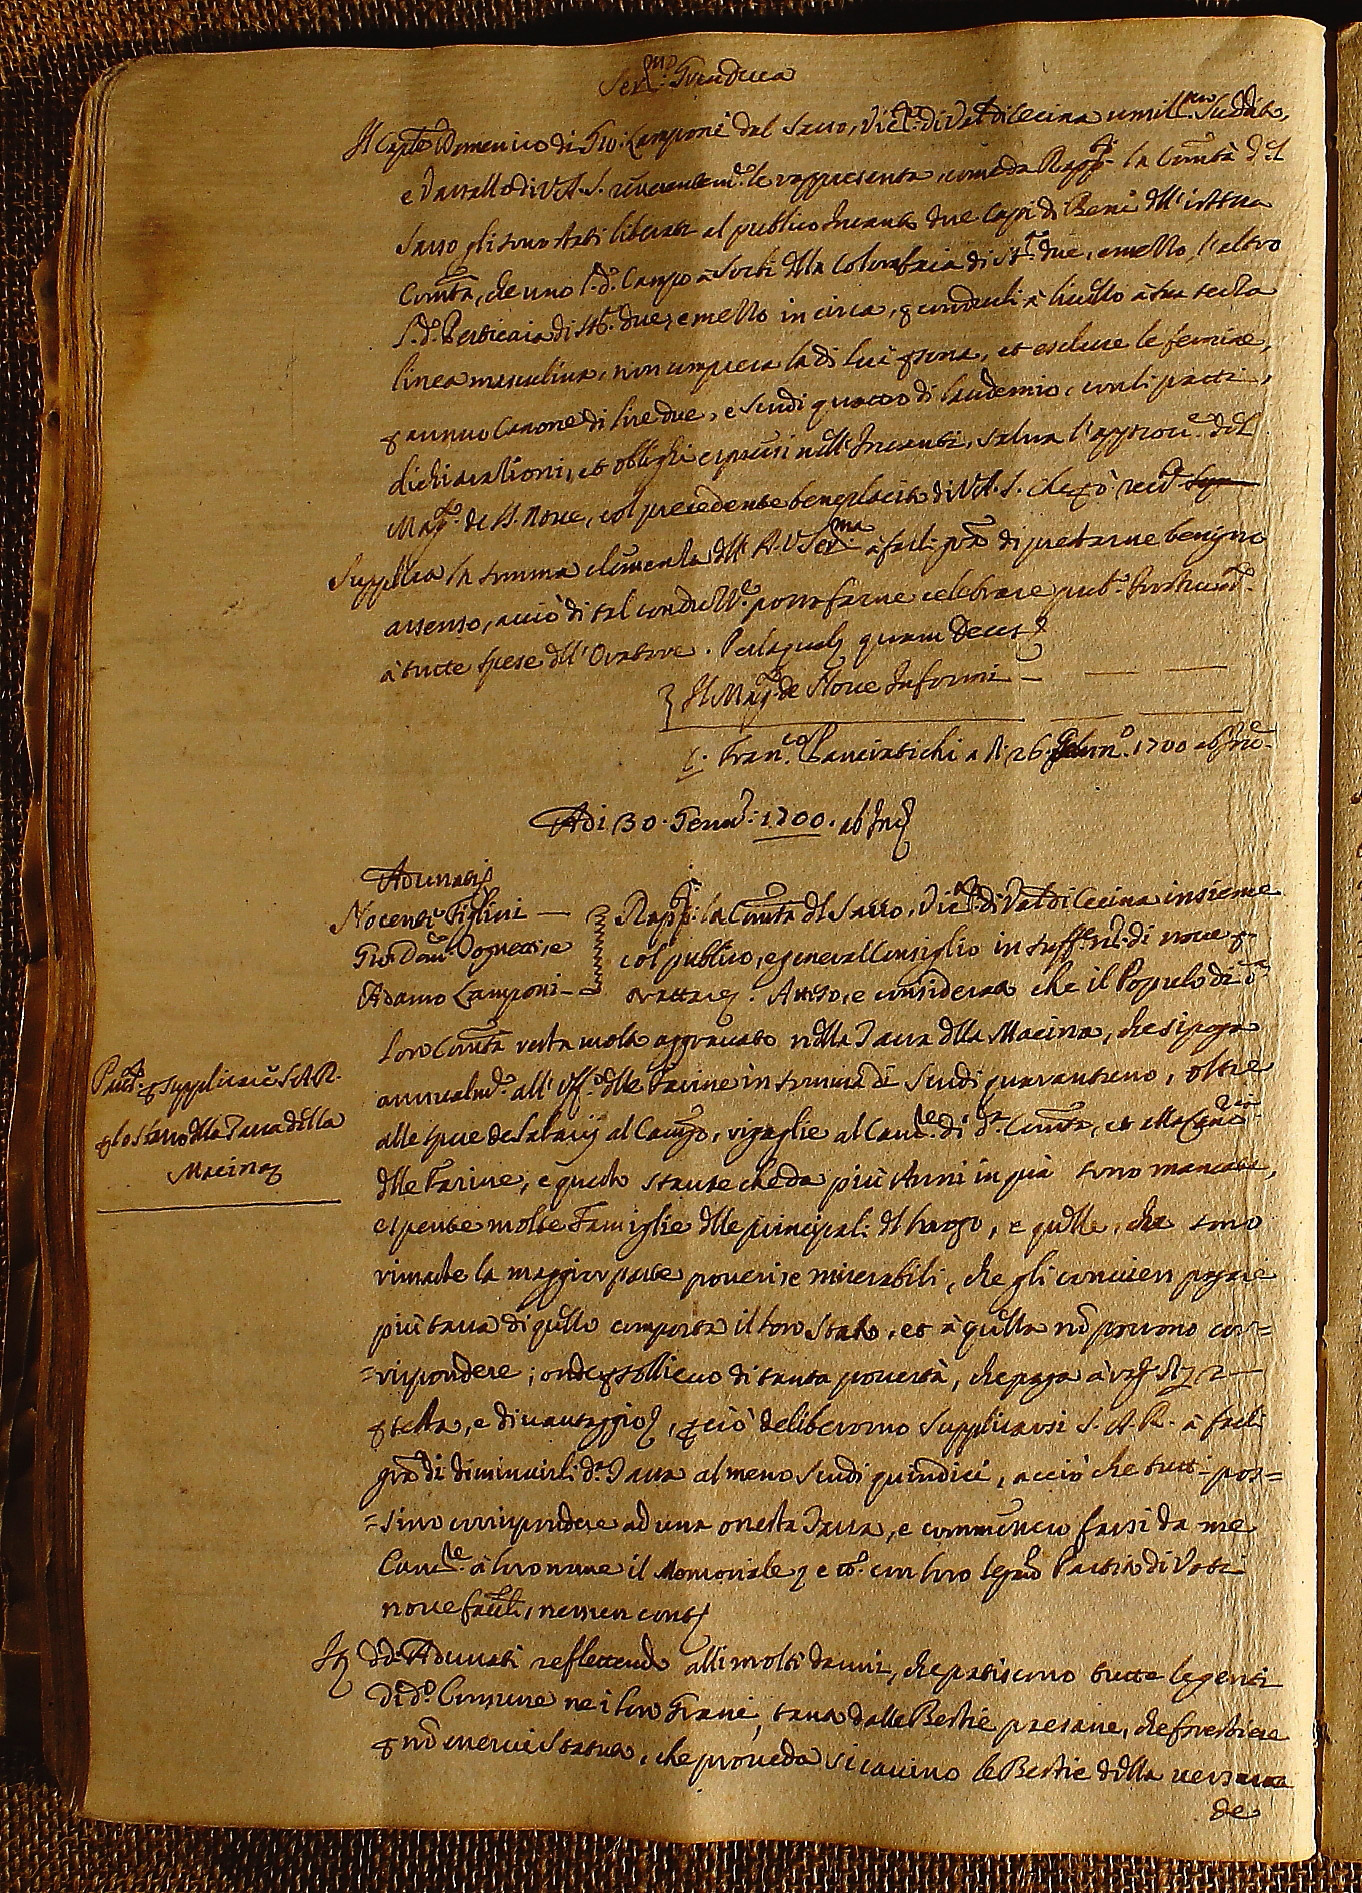 Ser.mo Granduca
Il Cap.no Domenico di Gio: Camponi dal Sasso, Vic.to di Val di Cecina umill.mo Suddito,
e Vassallo di V.A.S. reverentem.e le rappresenta, come da Rapp.ti la Com.tà d.l
Sasso gli sono stati liberati al publico Incanto due Capi di Beni dll'istessa
Com.tà, che uno l.d.o Campo à Sorbi dlla Colombaia di st.a due, e mezzo, l'altro
l.d.o Perticaia di sta. due, e mezzo in circa, p conduli à livello à sua retta
linea masculina, non compresa la di lui psona, et escluse le femine,
p annuo Canone di lire due, e scudi quattro di laudemio, con li patti,
dichiarationi, et obblighi espressi nelli Incanti, salva l'approv.e del
Mag.to de SS. Nove, col precedente beneplacito di V.A.S. che pciò
Supplica la somma clemenza dll'A.V. Ser.ma à farli gra di prestarne benigno
assenso, acciò di tal condu.ne possa farne celebrare pub.o Instrum.to
à tutte spese dll'Oratore. quam Deus
Il Mag.to de Nove Informi
Fran.co Panciatichi a dì 26 Genn.o 1700 ab Inc.e
Adi 30. Genn.o: 1700. ab Inc.
Adunati
Nocenzi Figlini
Gio: Dom.o Cognetti, e
Adamo Camponi
Rapp.ti la Com.tà dl Sasso, Vic.to di Val di Cecina insieme
col publico, e general Consiglio in suff.te n.o di nove p
trattare. Atteso, e considerato che il Populo di d.a
loro Com.tà resta molto aggravato nella Tassa dlla Macina, che si paga
annualm.te all'Uff.o dlle Farine in somma di Scudi quarantuno, oltre
alle spese de Salarij al Camgo, vigaglie al Canc.re di d.a Com.tà, et alla
dlle Farine, e questo stante che da più Anni in quà sono mancate,
e spente molte Famiglie dlle principali dl luogo, e qulle, che sono
rimaste la maggior parte povere, e miserabili, che gli convien pagare
più tassa di qullo comporta il loro Stato, et à qulla nō possono cor=
=rispondere; onde p sollievo di tanta povertà, che paga à
p testa, e di vantaggio, pciò deliberorno Supplicarsi S.A.R. à farli
gra di diminuirli d.a Tassa almeno scudi quindici, acciò che tutti pos=
=sino corrispondere ad una onesta Tassa, e commenerno farsi da me
Canc.re à loro nome il Memoriale, e cō. con loro leg.mo Partito di Voti
nove favli, nessun cont.
Par.to p supplicare S.A.R.
p lo sgravo dlla Tassa della
Macina
It. dd.i Adunati reflettendo alli molti danni, che patiscono tutte le genti
di d.o Comune ne i loro Grani, tanto dalle Bestie paesane, che forestiere
p nō esservi Statuto, che proveda si cavino le Bestie dalla
de